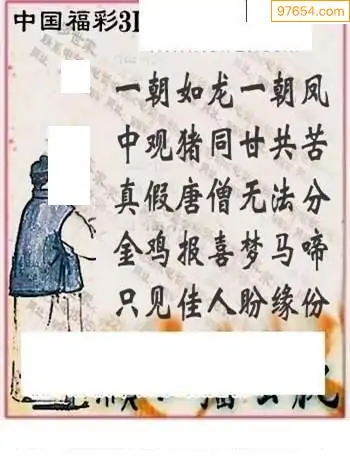 97654.com
中国福彩3D
一朝如龙一朝凤
中观猪同甘共苦
真假唐僧无法分
金鸡报喜梦马啼
只见佳人盼缘份